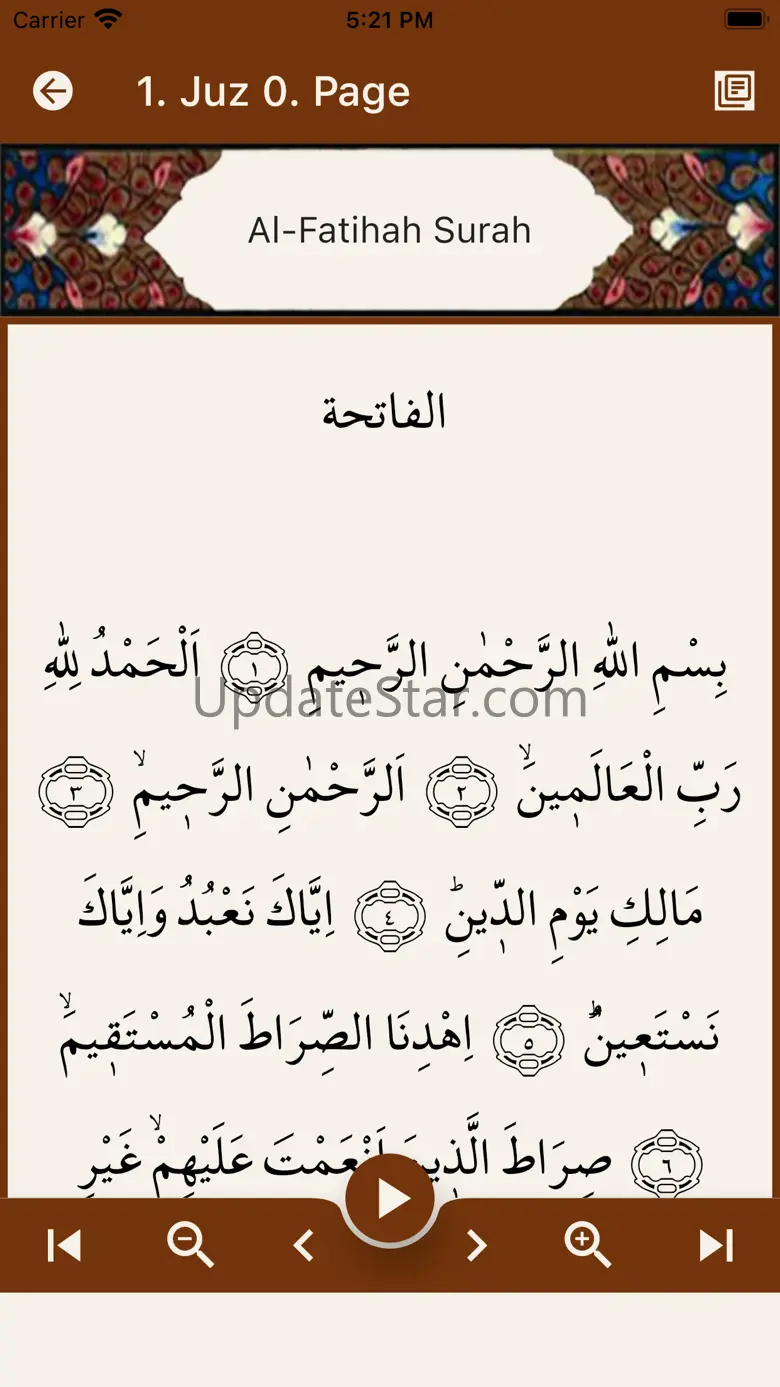 Carrier 5:21 PM
1. Juz 0. Page
Al-Fatihah Surah
الفاتحة
بِسْمِ اللّٰهِ الرَّحْمٰنِ الرَّح۪يمِ ١ اَلْحَمْدُ لِلّٰهِ
UpdateStar.com
رَبِّ الْعَالَم۪ينَۙ ٢ اَلرَّحْمٰنِ الرَّح۪يمِۙ ٣
مَالِكِ يَوْمِ الدّ۪ينِۜ ٤ اِيَّاكَ نَعْبُدُ وَاِيَّاكَ
نَسْتَع۪ينُۜ ٥ اِهْدِنَا الصِّرَاطَ الْمُسْتَق۪يمَۙ
٦ صِرَاطَ الَّذ۪ينَ اَنْعَمْتَ عَلَيْهِمْۙ غَيْرِ